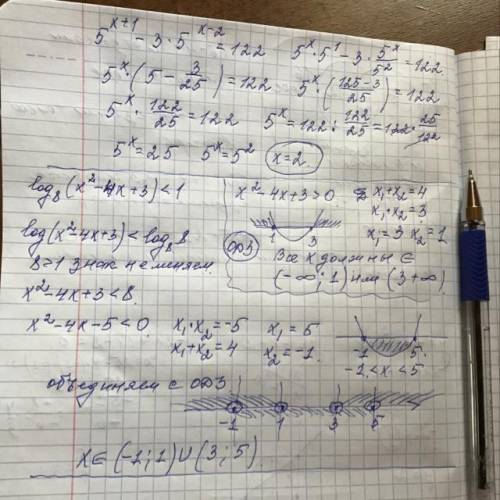 5^(x+1) - 3·5^(x-2) = 122   5^x·5^1 - 3·5^x/5^2 = 122
5^x·(5 - 3/25) = 122   5^x·((125-3)/25) = 122
5^x·122/25 = 122   5^x = 122 : 122/25 = 122·25/122
5^x = 25   5^x = 5^2   x = 2
log₈(x² - 4x + 3) < 1
log(x² - 4x + 3) < log₈8
8 > 1 знак не меняем.
x² - 4x + 3 < 8
x² - 4x + 3 > 0   x₁ + x₂ = 4
x₁·x₂ = 3
x₁ = 3   x₂ = 1
1   3
ОДЗ   Все x должны ∈
(-∞; 1) или (3 +∞)
x² - 4x - 5 < 0   x₁·x₂ = -5   x₁ = 5
x₁ + x₂ = 4   x₂ = -1
-1   5
-1 < x < 5
объединяем с ОДЗ
-1   1   3   5
x ∈ (-1; 1) ∪ (3; 5)